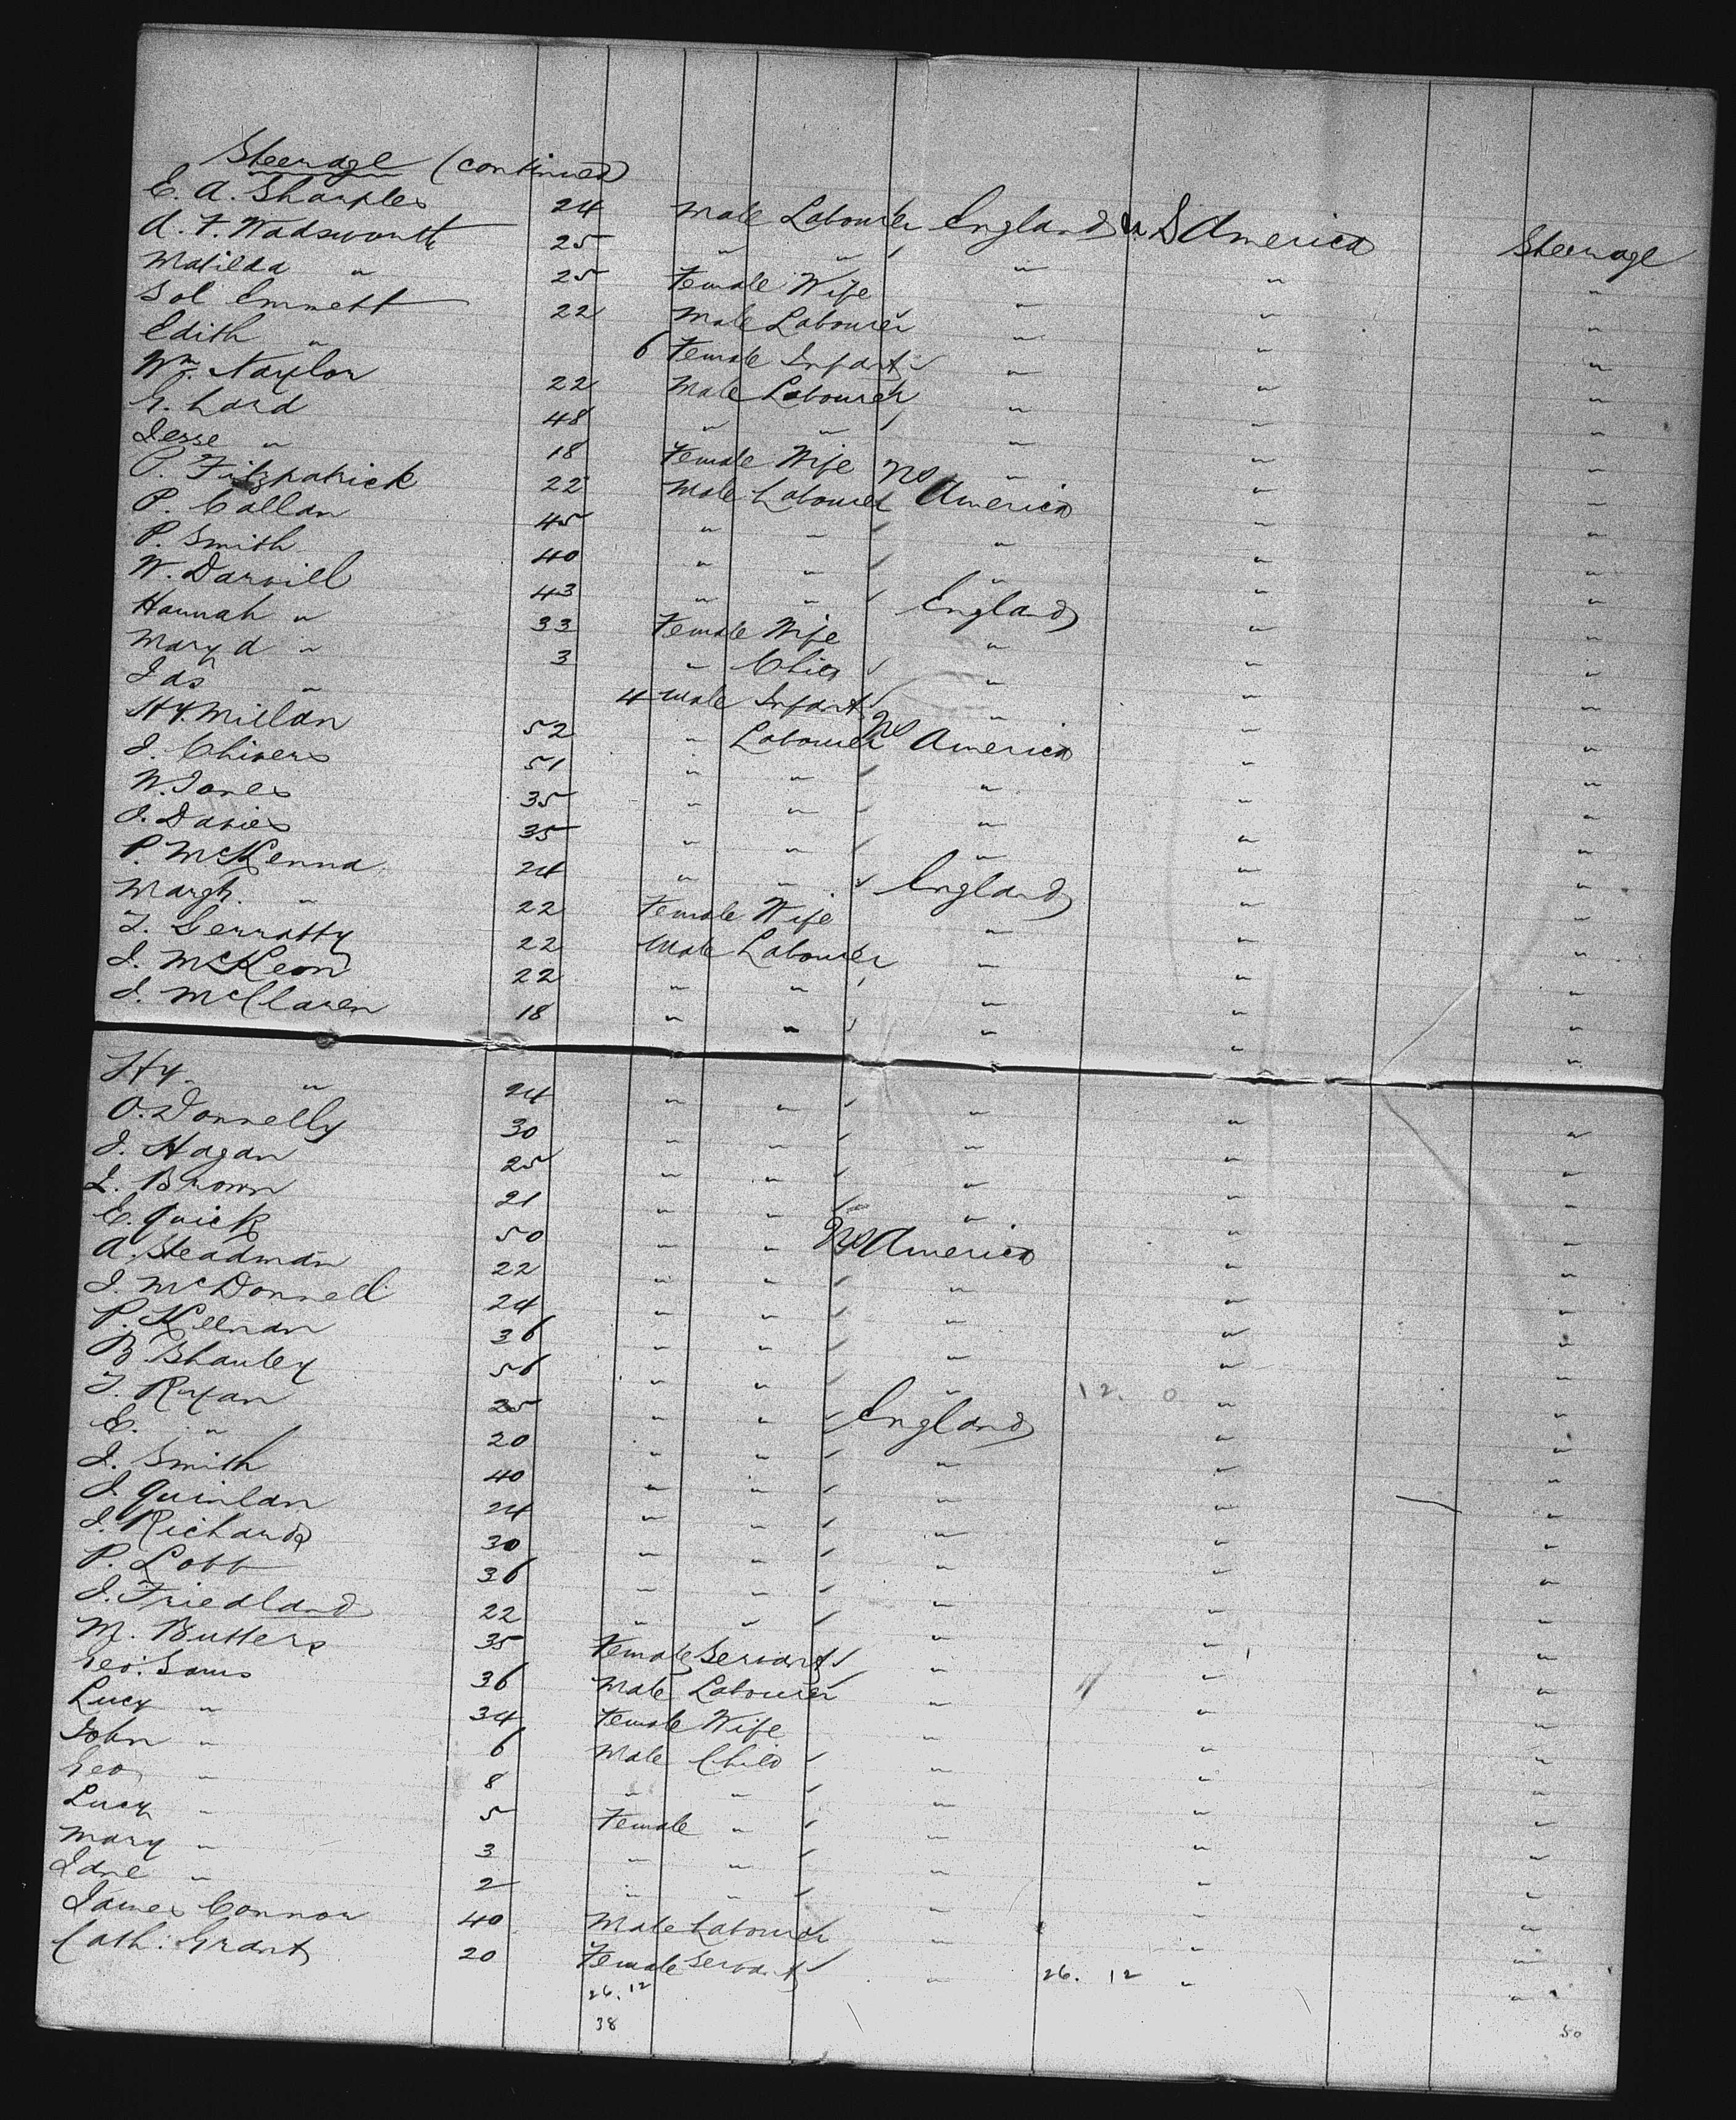 Steerage (continued)
E. A. Sharples 24 Male Labourer England U S America Steerage
A. F. Wadsworth 25 " " " " "
Matilda " 25 Female Wife " " "
Sol Emmett 22 Male Labourer " " "
Edith " 6 Female Infant " " "
Wm. Naylor 22 Male Labourer " " "
G. Lard 48 " " " " "
Jesse " 18 Female Wife " " "
P. Fitzpatrick 22 Male Labourer US America " "
P. Callan 45 " " " " "
P. Smith 40 " " " " "
W. Darvill 43 " " England " "
Hannah " 33 Female Wife " " "
Mary A " 3 " Child " " "
Jas " 4 Male Infant " " "
Hy. Millan 52 " Labourer US America " "
J. Chivers 51 " " " " "
W. Jones 35 " " " " "
J. Davies 35 " " " " "
P. McKenna 24 " " England " "
Margt. " 22 Female Wife " " "
T. Gerratty 22 Male Labourer " " "
J. McKeon 22 " " " " "
J. McClaren 18 " " " " "
Hy. " 24 " " " " "
O. Donnelly 30 " " " " "
J. Hagan 25 " " " " "
L. Brown 21 " " " " "
E. Quick 50 " " US America " "
A. Steadman 22 " " " " "
J. McDonnell 24 " " " " "
P. Keenan 36 " " " " "
B Shanley 56 " " " 12. 0 " "
T. Ryan 25 " " England " "
E. " 20 " " " " "
J. Smith 40 " " " " "
J. Quinlan 24 " " " " "
J. Richards 30 " " " " "
P. Lobb 36 " " " " "
J. Friedland 22 " " " " "
M. Butters 35 Female Servant " " "
Geo. Sams 36 Male Labourer " " "
Lucy " 34 Female Wife " " "
John " 6 Male Child " " "
Geo " 8 " " " " "
Lucy " 5 Female " " " "
Mary " 3 " " " " "
Jane " 2 " " " " "
James Connor 40 Male Labourer " " "
Cath. Grant 20 Female Servant " 26. 12 " "
26. 12
38 50